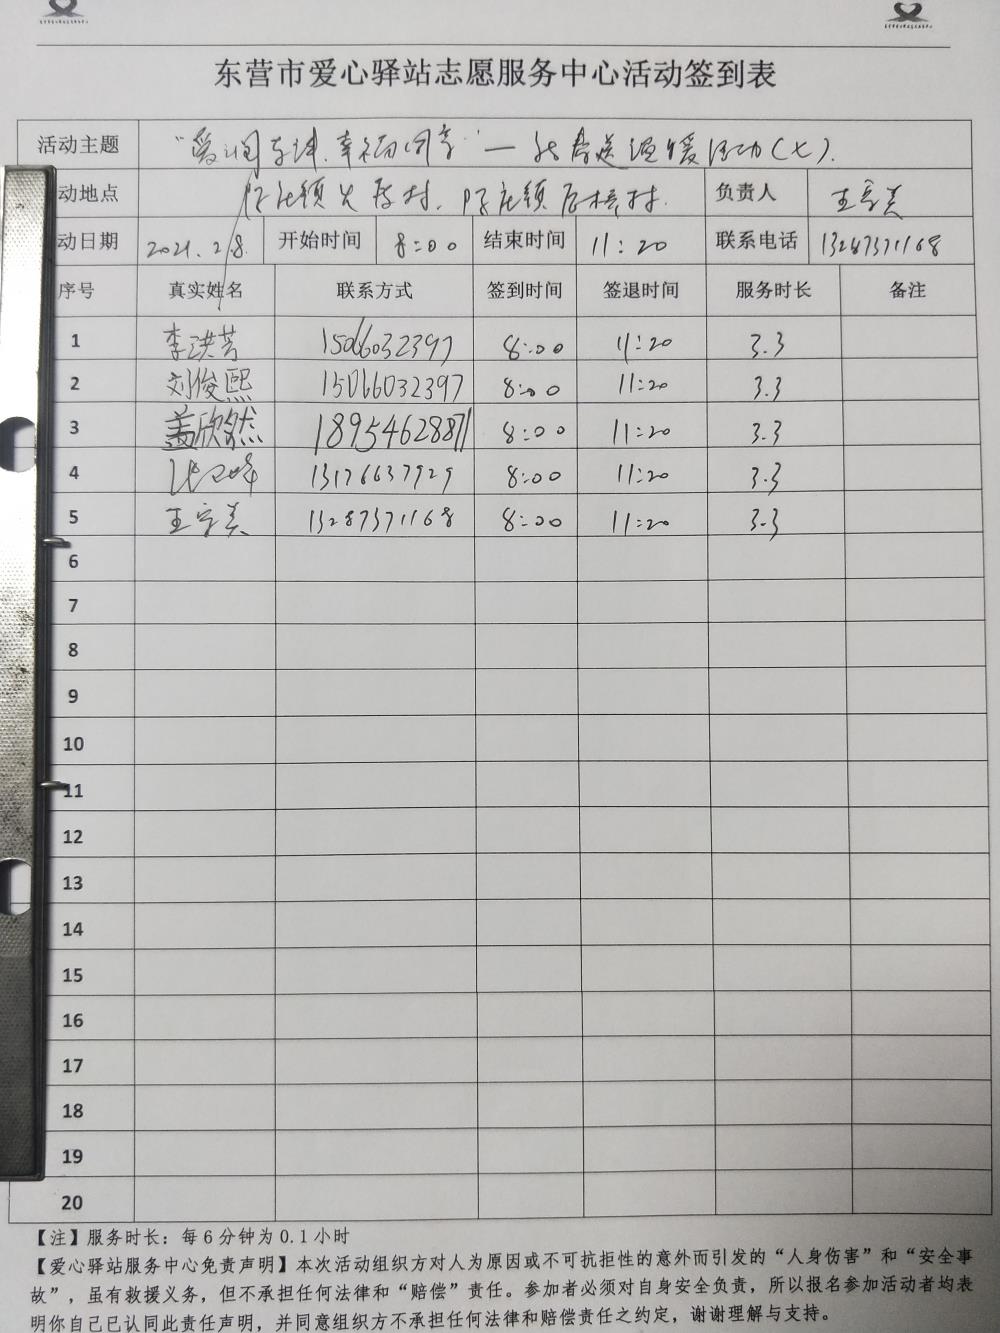 东营市爱心驿站志愿服务中心活动签到表
活动主题 "爱润东津、幸福同享"— 送温暖活动(七).
动地点 陈庄镇 村、陈庄镇 村. 负责人 王室美
动日期 2021.2.8. 开始时间 8:00 结束时间 11:20 联系电话 13287371168
序号 真实姓名 联系方式 签到时间 签退时间 服务时长 备注
1 李洪芳 15066032397 8:00 11:20 3.3
2 刘俊熙 15066032397 8:00 11:20 3.3
3 盖欣然 18954628871 8:00 11:20 3.3
4 张卫峰 13176637929 8:00 11:20 3.3
5 王室美 13287371168 8:00 11:20 3.3
6
7
8
9
10
11
12
13
14
15
16
17
18
19
20
【注】服务时长：每6分钟为0.1小时
【爱心驿站服务中心免责声明】本次活动组织方对人为原因或不可抗拒性的意外而引发的“人身伤害”和“安全事
故”，虽有救援义务，但不承担任何法律和“赔偿”责任。参加者必须对自身安全负责，所以报名参加活动者均表
明你自己已认同此责任声明，并同意组织方不承担任何法律和赔偿责任之约定，谢谢理解与支持。